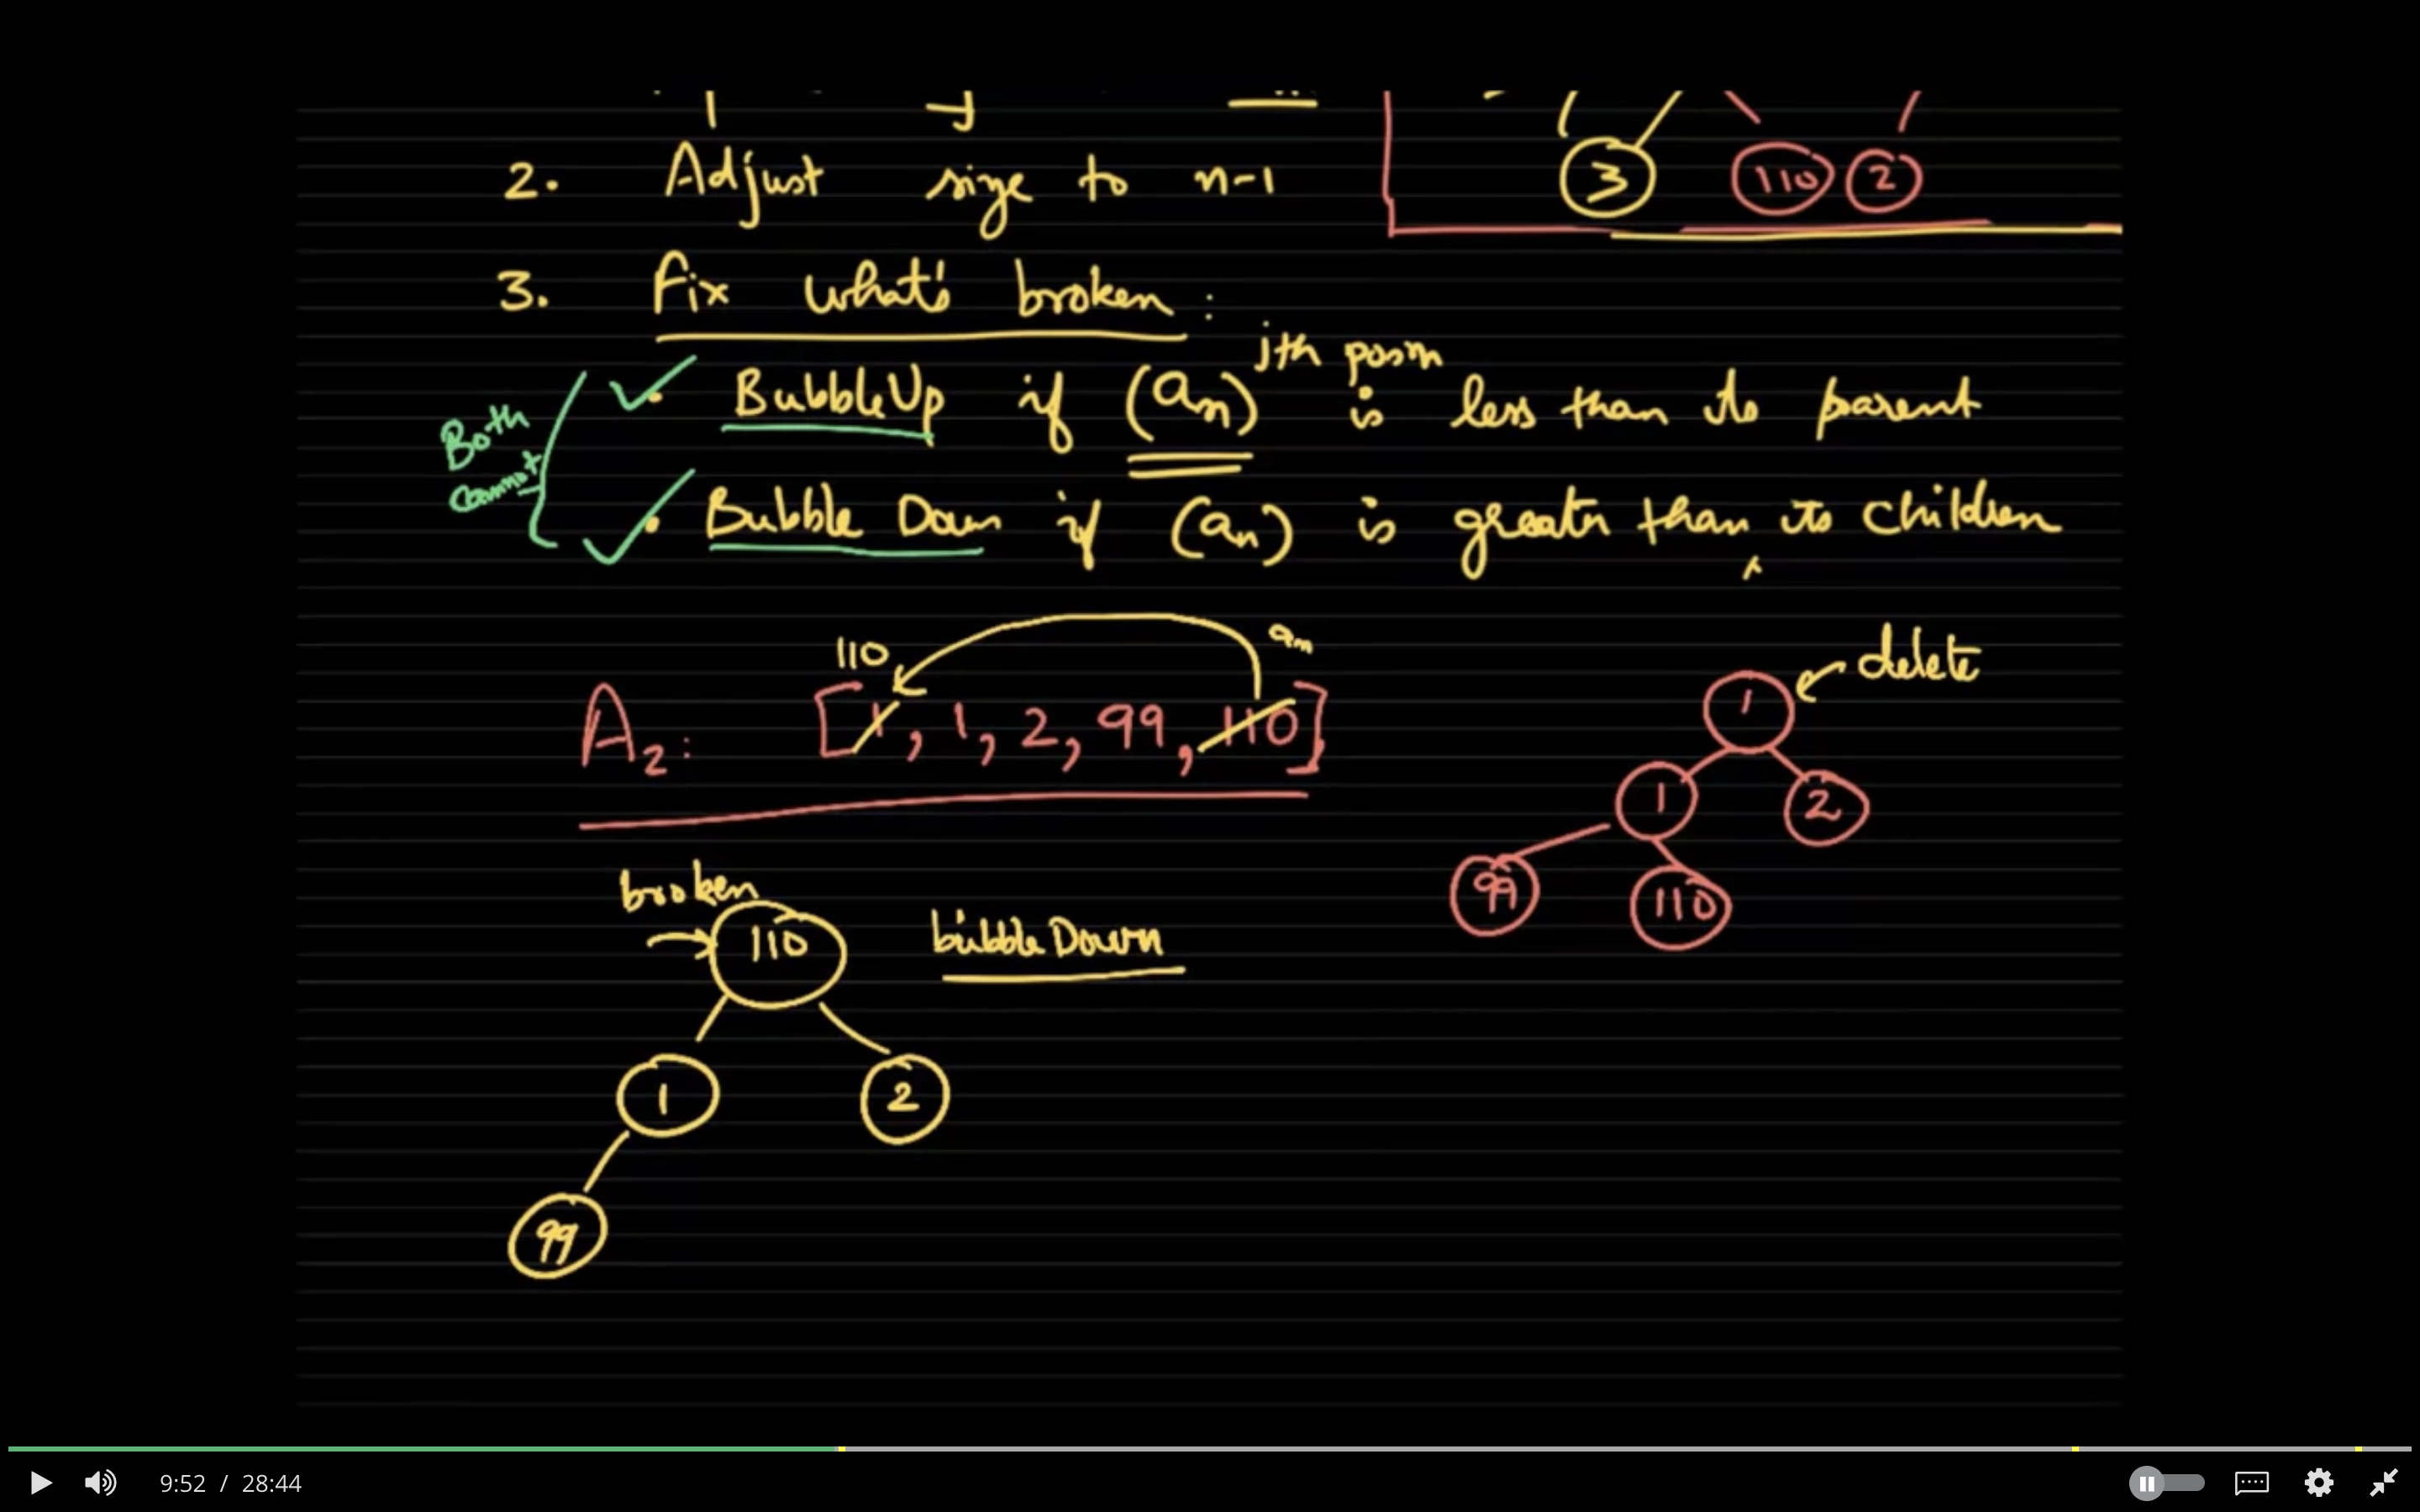 2. Adjust size to n-1
3
110
2
3. Fix what's broken:
jth posn
BubbleUp if (an) is less than its parent
Both
cannot
Bubble Down if (an) is greater than its children
110
an
delete
A2: [1, 1, 2, 99, 110]
1
1
2
99
110
broken
110
bubbleDown
1
2
99
9:52 / 28:44